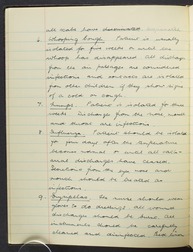 all scabs have
6. Whooping Cough. Patient is usually
isolated for five weeks or until the
whoop has disappeared. All discharges
from the air passages are considered
infectious and contacts are isolated
for other children if they show signs
of a cold or cough.
7. Mumps. Patient is isolated for three
weeks. Discharge from the nose mouth
and throat are infectious.
8. Influenza. Patient should be isolated
for four days after the temperature
becomes normal or until all catarrhal
discharges have ceased.
Secretions from the eyes nose and
mouth should be treated as
infectious.
9. Erysipelas. The nurse should wear
gloves to do dressings. All wound
discharges should be burnt. All
instruments should be carefully
cleaned and disinfected